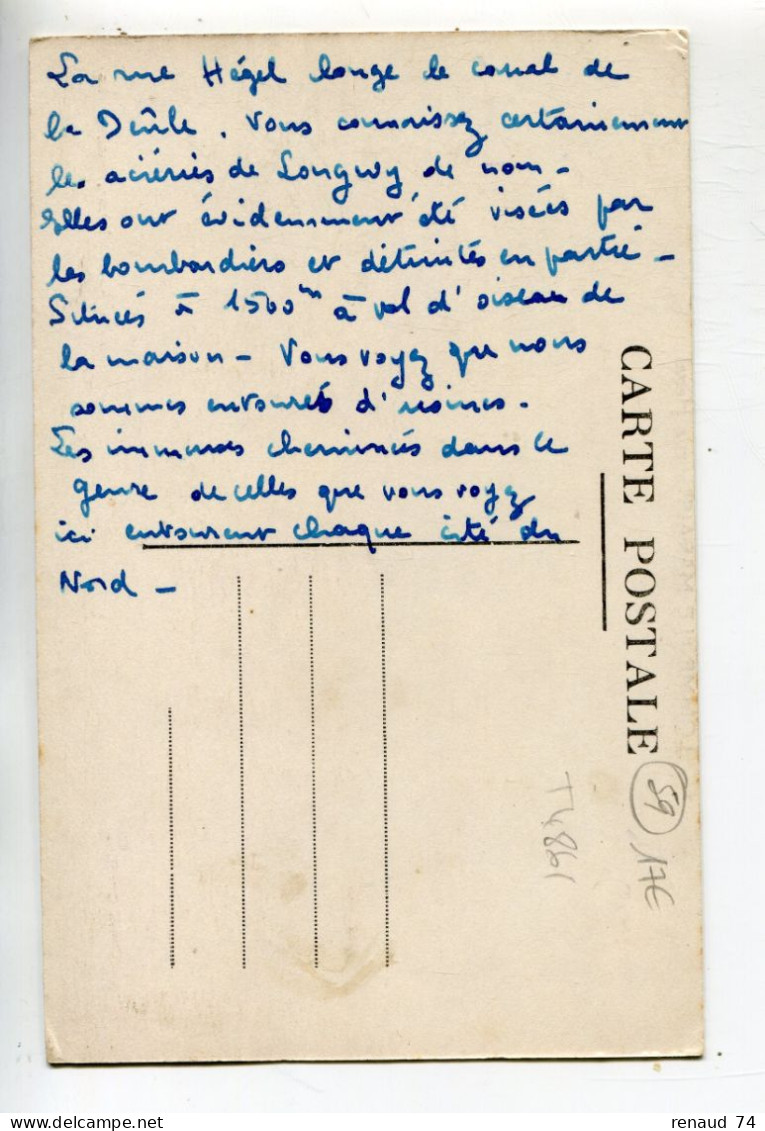 La rue Hégel longe le canal de
la Deûle. Vous connaissez certainement
les aciéries de Longwy de nom -
Elles ont évidemment été visées par
les bombardiers et détruites en partie -
Situées à 1500m à vol d'oiseau de
la maison - Vous voyez que nous
sommes entourés d'usines.
Les immenses cheminées dans le
genre de celles que vous voyez
ici entourent chaque cité du
Nord -
CARTE POSTALE
59
17€
T4861
renaud 74